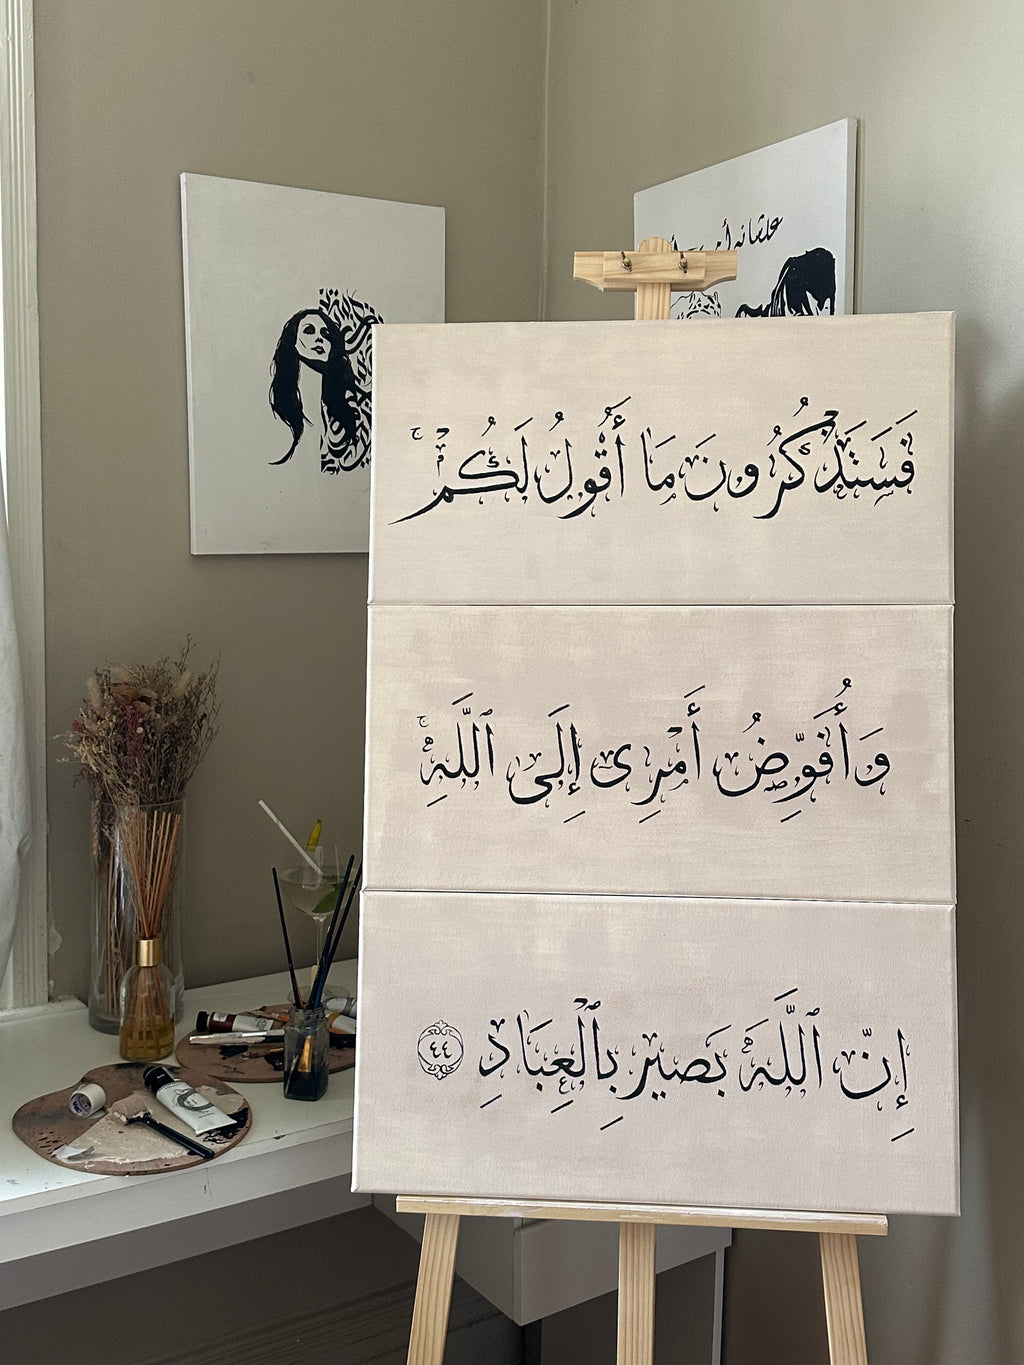 فَسَتَذْكُرُونَ مَا أَقُولُ لَكُمْ ۚ
وَأُفَوِّضُ أَمْرِى إِلَى ٱللَّهِ ۚ
إِنَّ ٱللَّهَ بَصِيرٌ بِٱلْعِبَادِ ٤٤
علشانه